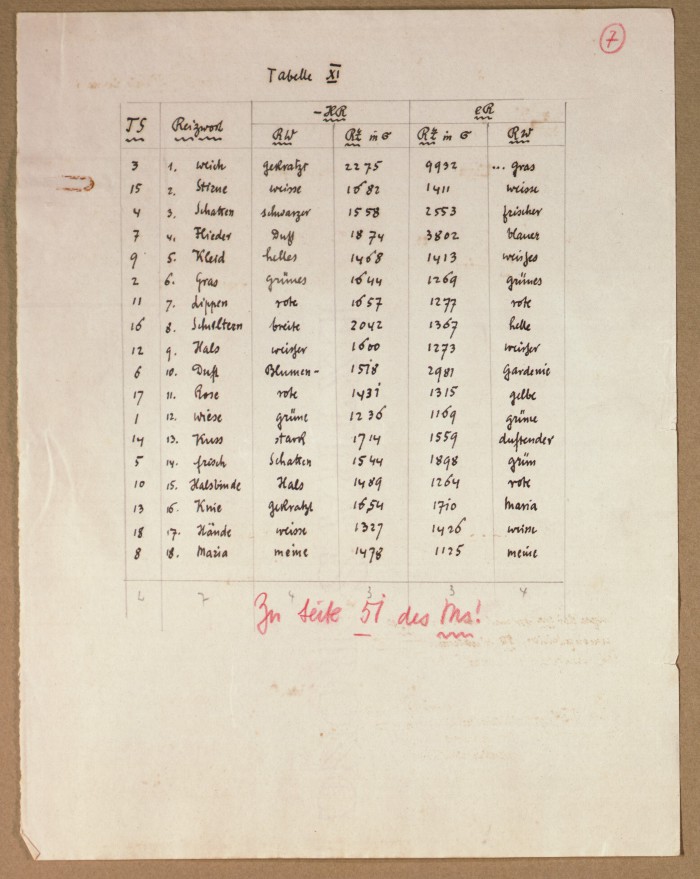 7
Tabelle XI
TS Reizwort -HR eR
RW Rz in σ Rz in σ RW
3 1. weich gekratzt 2275 9932 ... gras
15 2. Stirne weisse 1682 1411 weisse
4 3. Schatten schwarzer 1558 2553 frischer
7 4. Flieder Duft 1874 3802 blauer
9 5. Kleid helles 1468 1413 weisses
2 6. Gras grünes 1644 1269 grünes
11 7. Lippen rote 1657 1277 rote
16 8. Schultern breite 2042 1367 helle
12 9. Hals weisser 1600 1273 weisser
6 10. Duft Blumen- 1518 2981 Gardenie
17 11. Rose rote 1431 1315 gelbe
1 12. wiese grüne 1236 1169 grüne
14 13. Kuss stark 1714 1559 duftender
5 14. frisch Schatten 1544 1898 grün
10 15. Halsbinde Hals 1489 1264 rote
13 16. Knie gekratzt 1654 1710 Maria
18 17. Hände weisse 1327 1426 weisse
8 18. Maria meine 1478 1125 meine
7 4 3 3 4
Zu Seite 51 des Ms!